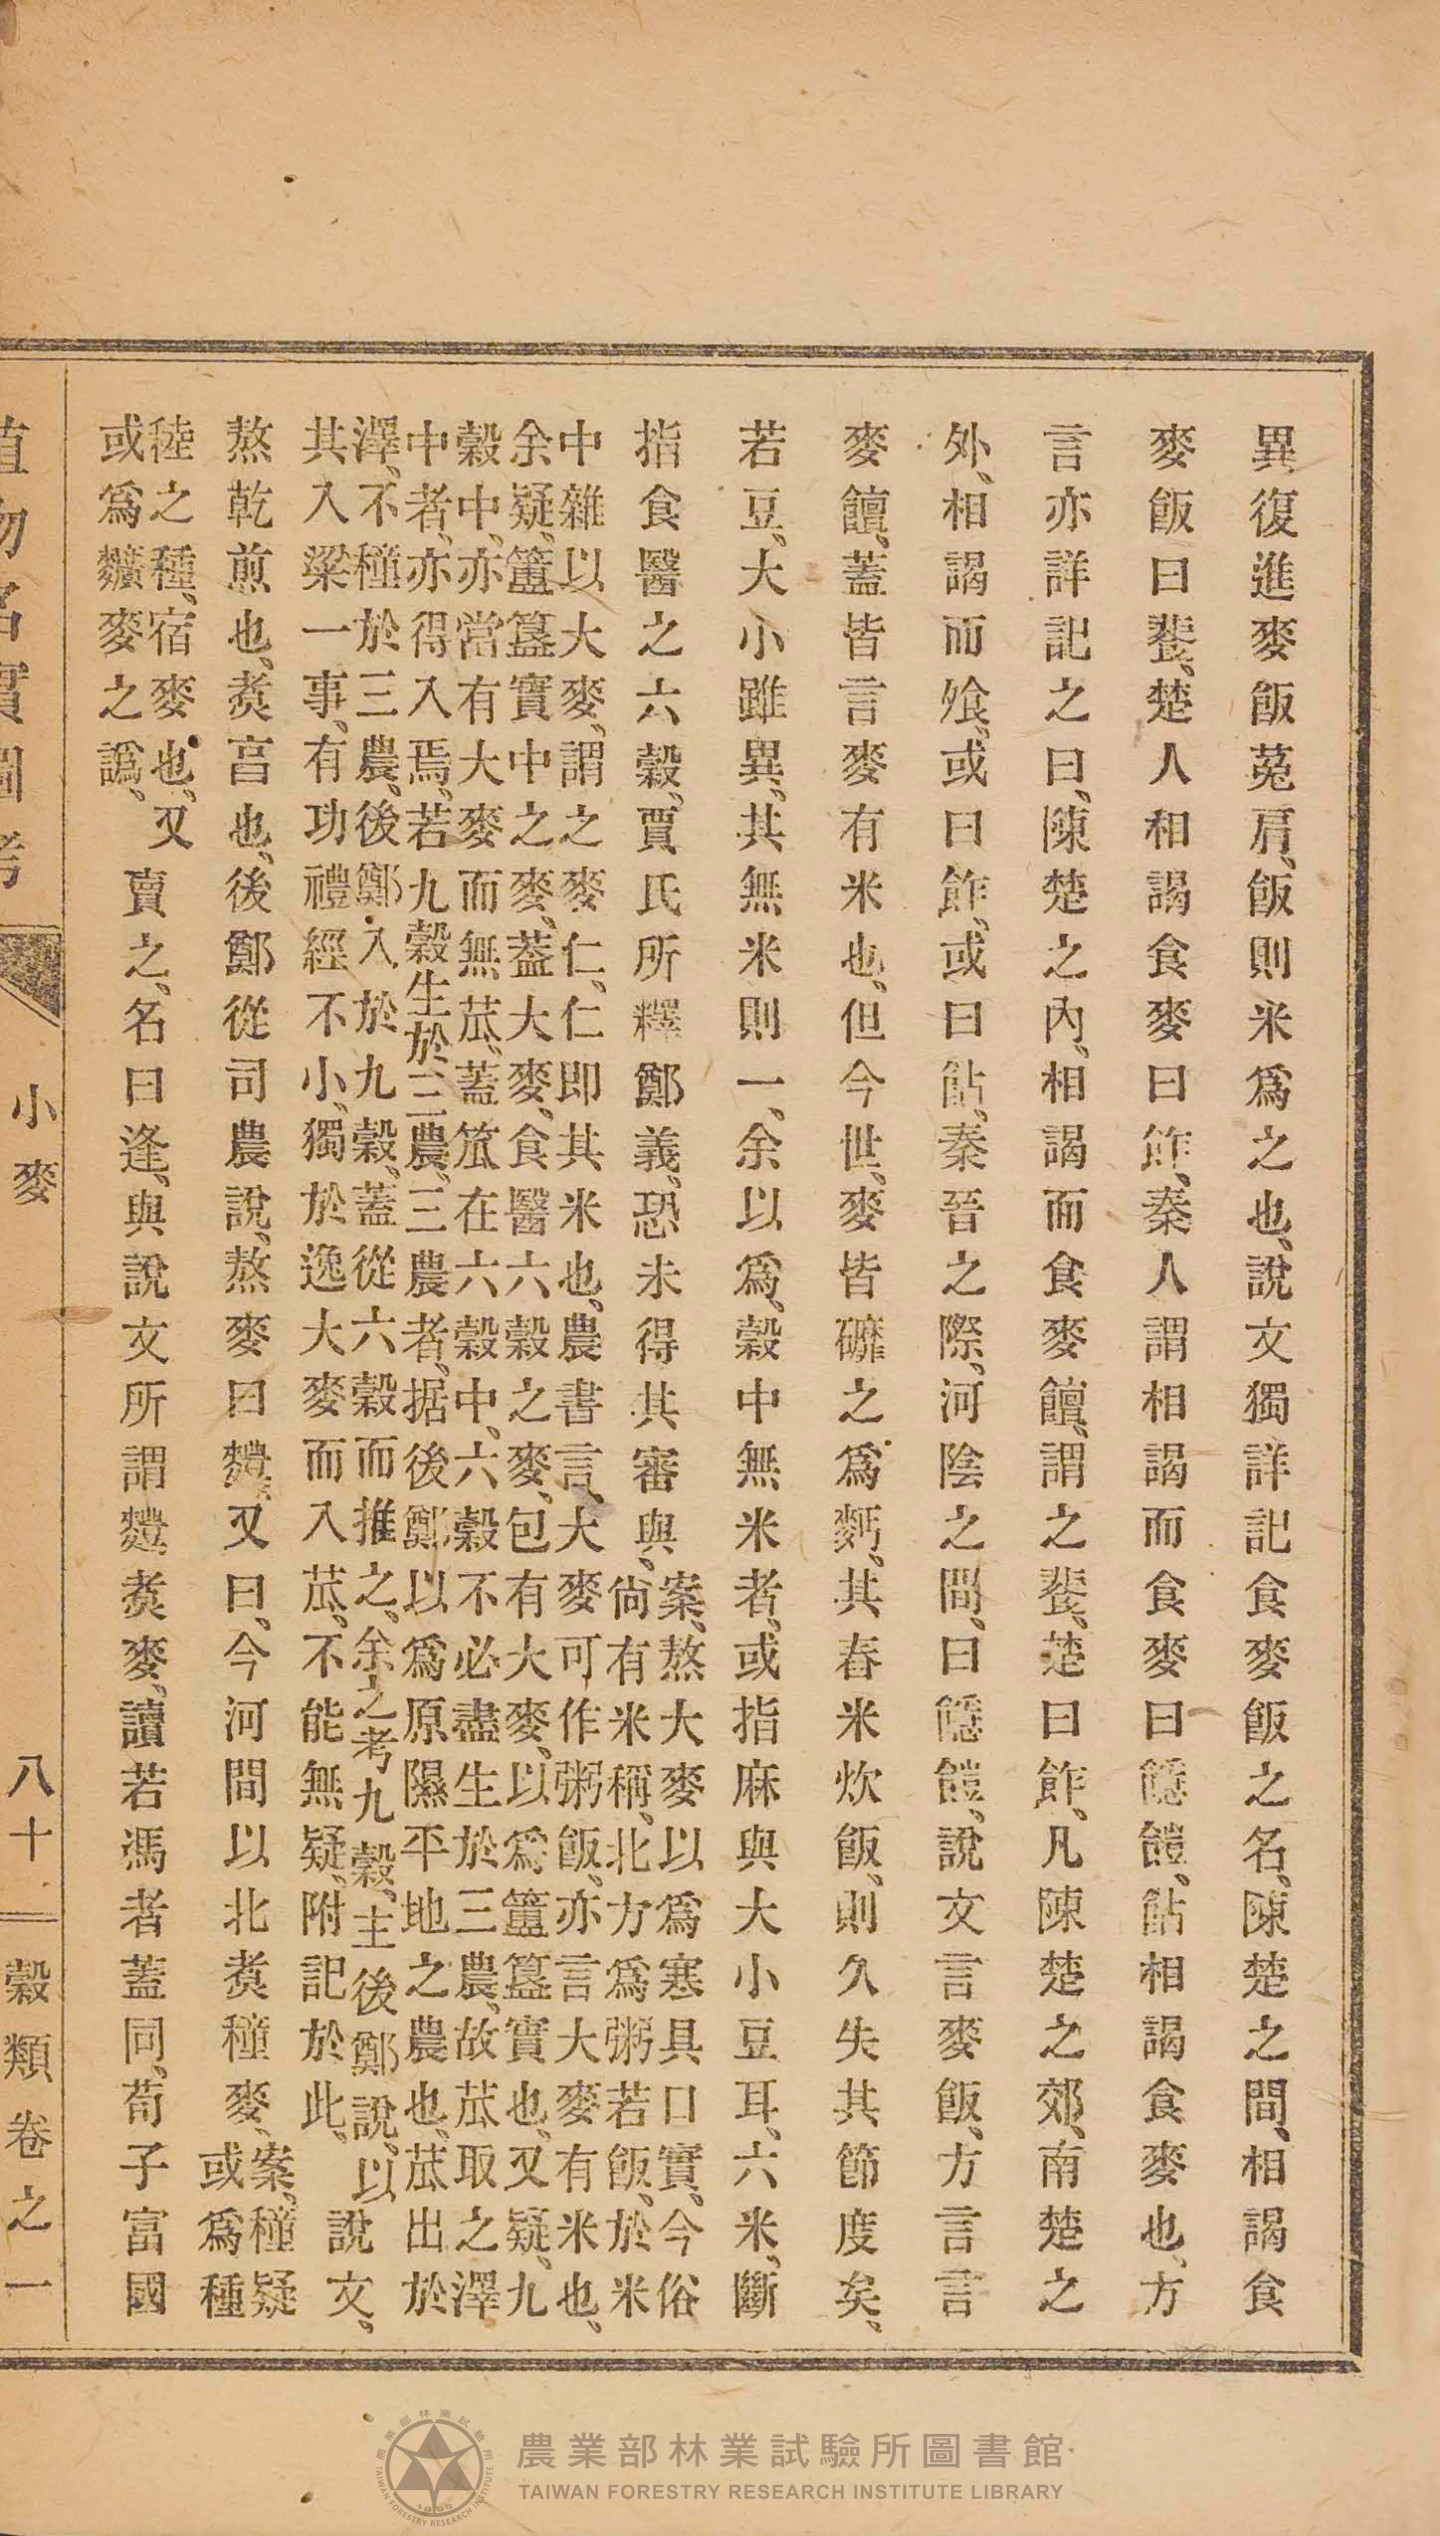 異復進麥飯菟肩、飯則米爲之也、說文獨詳記食麥飯之名、陳楚之間、相謁食
麥飯曰䬷、楚人相謁食麥曰飵、秦人謂相謁而食麥曰䭡䭓、䬯相謁食麥也、方
言亦詳記之曰、陳楚之內、相謁而食麥饘、謂之䬷、楚曰飵、凡陳楚之郊、南楚之
外、相謁而飧、或曰飵、或曰䬯、秦晉之際、河陰之間、曰䭡䭓、說文言麥飯、方言言
麥饘、蓋皆言麥有米也、但今世、麥皆礳之爲麪、其舂米炊飯、則久失其節度矣、
若豆、大小雖異、其無米則一、余以爲、穀中無米者、或指麻與大小豆耳、六米、斷
指食醫之六穀、賈氏所釋鄭義、恐未得其審與、
案、熬大麥以爲寒具口實、今俗
尙有米稱、北方爲粥若飯、於米
中雜以大麥、謂之麥仁、仁即其米也、農書言、大麥可作粥飯、亦言大麥有米也、
余疑、簠簋實中之麥、蓋大麥、食醫六穀之麥、包有大麥、以爲簠簋實也、又疑、九
穀中、亦當有大麥而無苽、蓋苽在六穀中、六穀不必盡生於三農、故苽取之澤
中者、亦得入焉、若九穀生於三農、三農者、据後鄭以爲原隰平地之農也、苽出於
澤、不種於三農、後鄭入於九穀、蓋從六穀而推之、余之考九穀、主後鄭說、以
其入梁一事、有功禮經不小、獨於逸大麥而入苽、不能無疑、附記於此、
說文、
熬乾煎也、煑亯也、後鄭從司農說、熬麥曰麷、又曰、今河間以北煑種麥、
案、穜疑
或爲種
稑之種、宿麥也、又
或爲穬麥之譌、
賣之、名曰逢、與說文所謂麷煑麥、讀若馮者蓋同、荀子富國
植物名實圖考
小麥
八十
穀類卷之一
農業部林業試驗所圖書館
TAIWAN FORESTRY RESEARCH INSTITUTE LIBRARY
農業部林業試驗所
TAIWAN FORESTRY RESEARCH INSTITUTE
1895